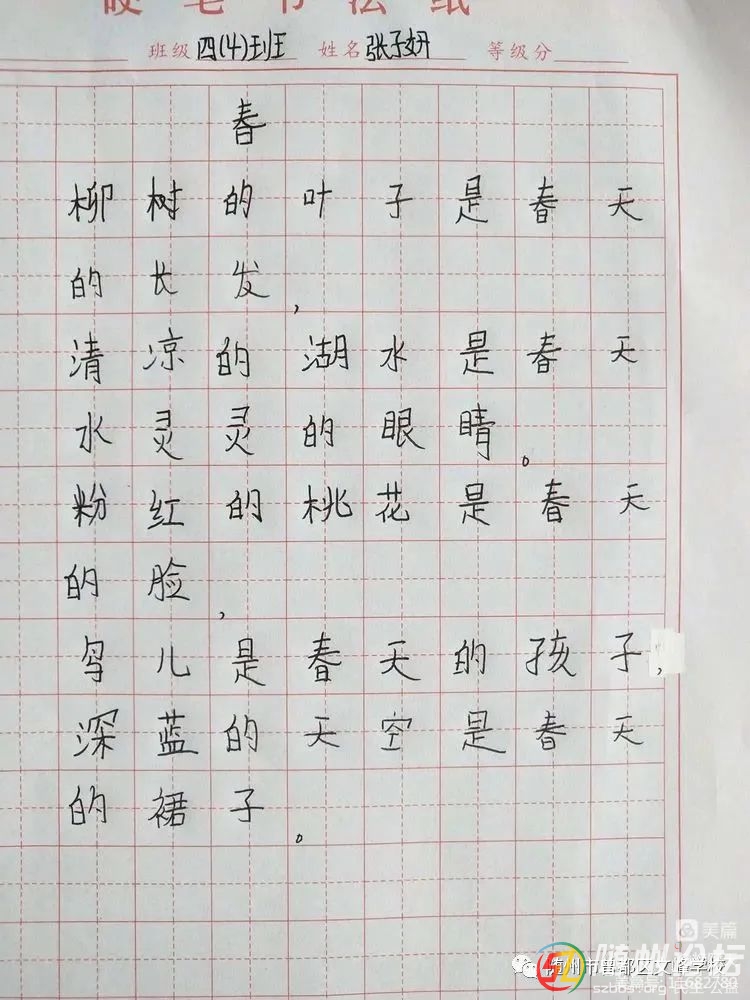 硬笔书法纸
班级 四(4)班 姓名 张子妍 等级分
春
柳树的叶子是春天
的长发,
清凉的湖水是春天
水灵灵的眼睛。
粉红的桃花是春天
的脸,
鸟儿是春天的孩子,
深蓝的天空是春天
的裙子。
美篇
随州论坛
随州市曾都区文峰学校
szbbs.org